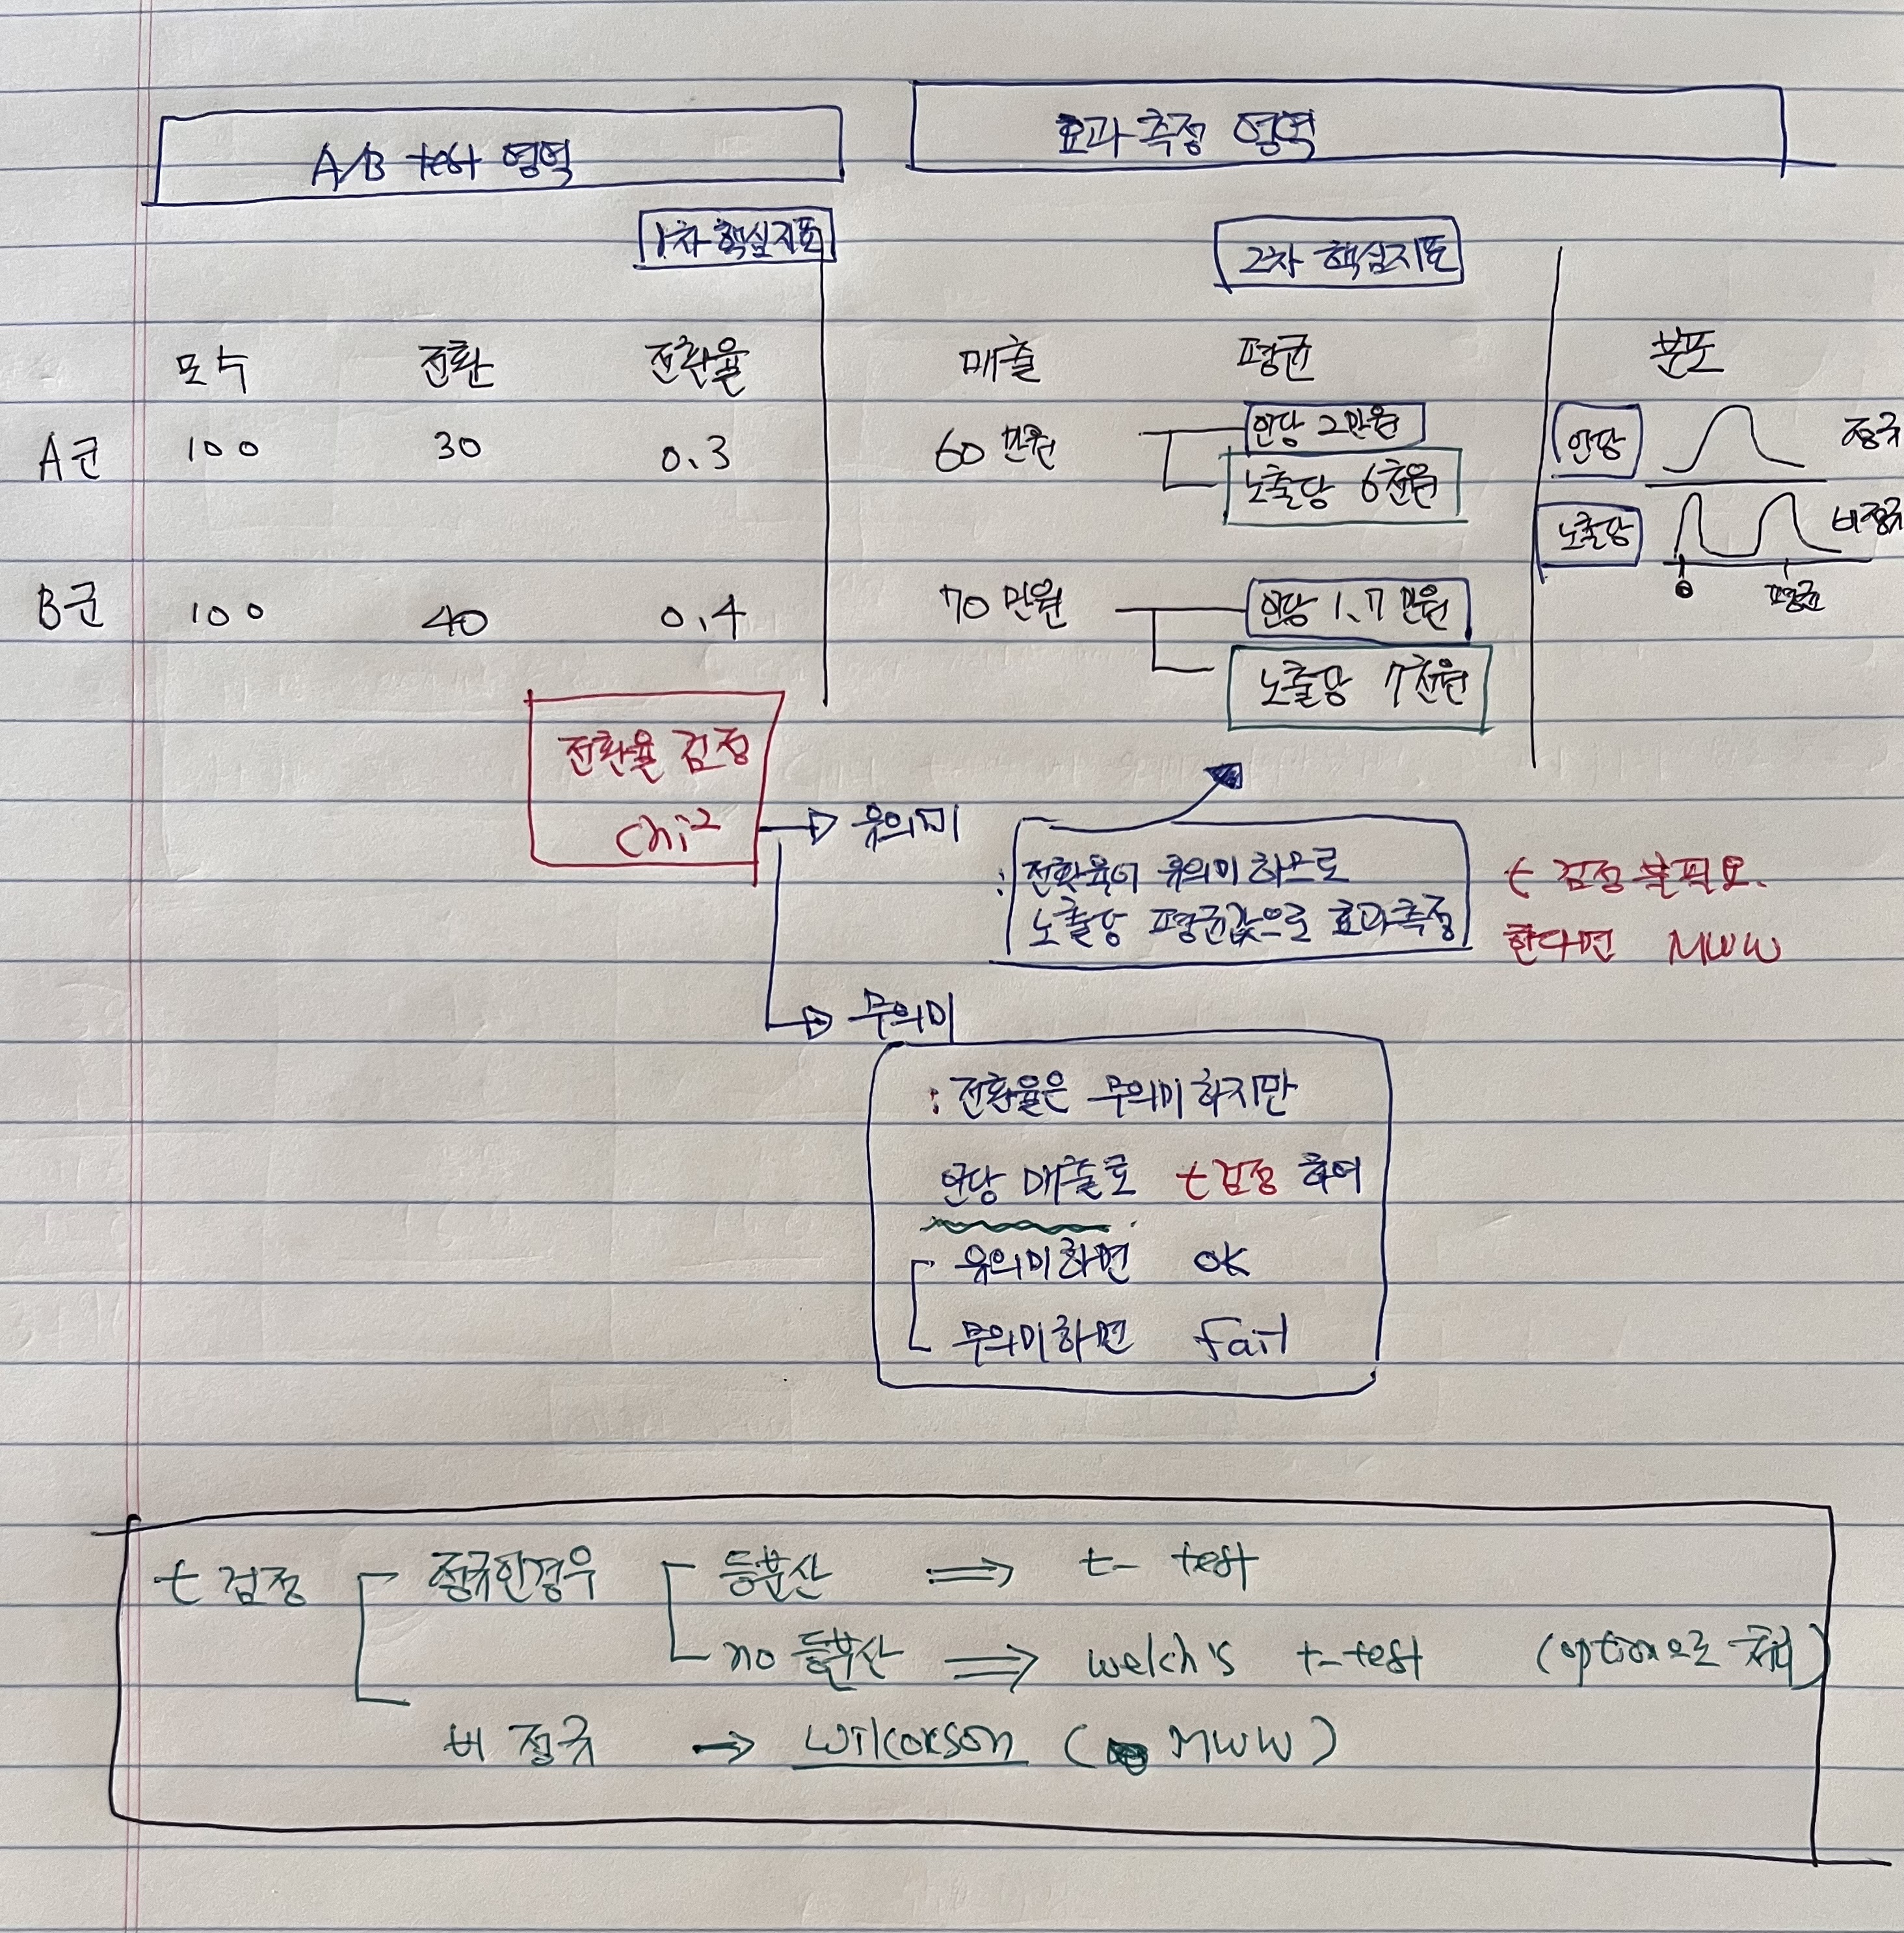 A/B test 영역
효과 측정 영역
1차 핵심지표
2차 핵심지표
모수 전환 전환율 매출 평균 분포
A군 100 30 0.3 60만원 인당 2만원 인당 정규
노출당 6천원 노출당 비정규
0 평균
B군 100 40 0.4 70만원 인당 1.7만원
노출당 7천원
전환율 검정
chi²
유의미
: 전환율이 유의미 하므로
노출당 평균값으로 효과측정
t 검정 불필요.
한다면 MWW
무의미
: 전환율은 무의미 하지만
인당 매출로 t검정 하여
유의미하면 OK
무의미하면 Fail
t 검정 정규인경우 등분산 ⇒ t- test
no 등분산 ⇒ welch's t-test (option으로 처리)
비정규 → Wilcoxson (MWW)